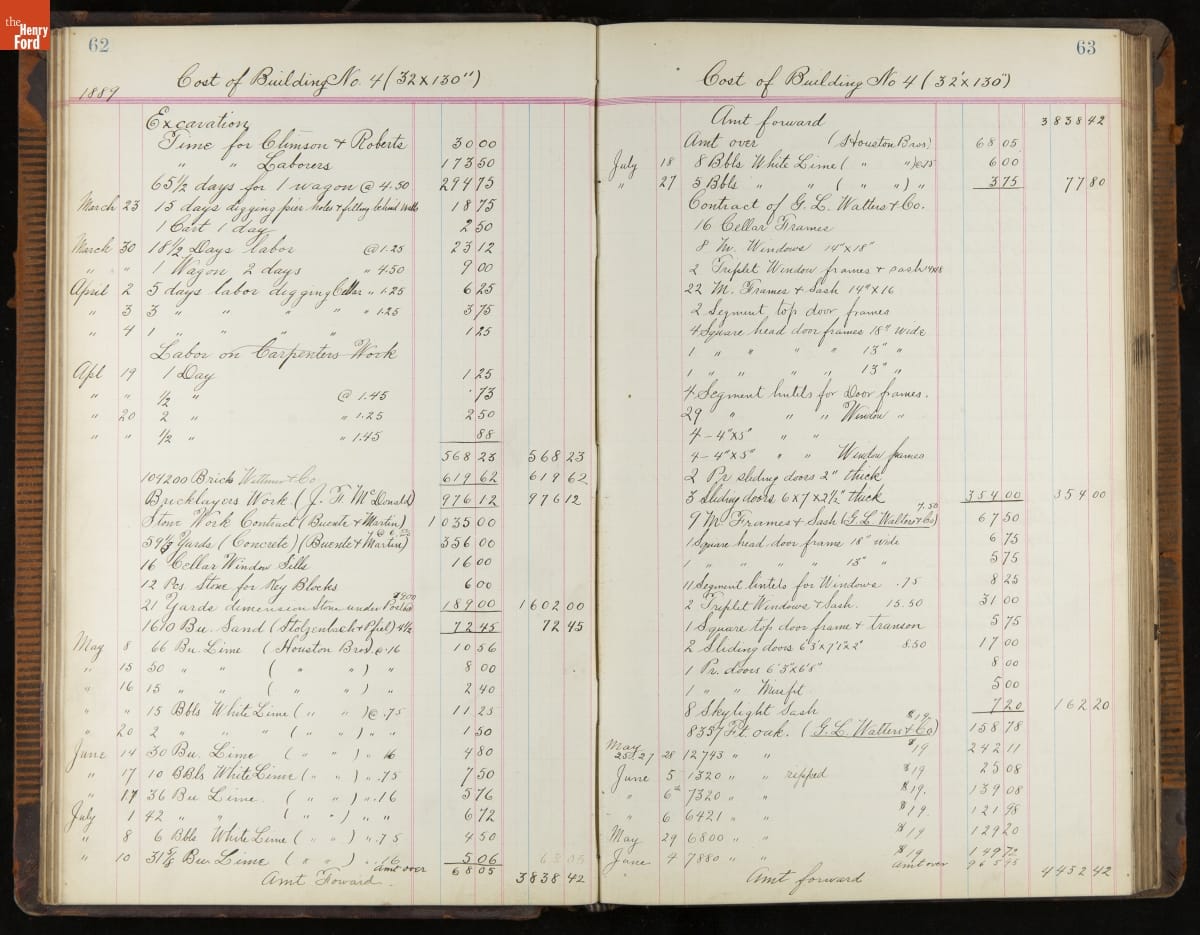 the
Henry
Ford
62
1889
Cost of Building No. 4 (32 x 130")
Excavation
Time for Climson + Roberts 30 00
" " Laborers 173 50
65 1/2 days for 1 wagon @ 4.50 294 75
March 23 15 days digging pier holes & filling behind walls 18 75
1 Cart 1 day 2 50
March 30 18 1/2 Days labor @ 1.25 23 12
" " 1 Wagon 2 days " 4.50 9 00
April 2 5 days labor digging Cellar " 1.25 6 25
" 3 3 " " " " " 1.25 3 75
" 4 1 " " " 1 25
Labor on Carpenters Work
Apl 19 1 Day 1 25
" " 1/2 " @ 1.45 .73
" 20 2 " " 1.25 2 50
" " 1/2 " " 1.45 88
568 23 568 23
104200 Brick & Co 619 62 619 62
Bricklayers Work (J. F. McDonald) 976 12 976 12
Stone Work Contract (Buente & Martin) 1035 00
59 1/3 Yards (Concrete) (Buente & Martin) @ 6.00 356 00
16 Cellar Window Sills 16 00
12 Pcs. Stone for Key Blocks 6 00
21 Yards dimension Stone under Posts @ 9.00 189 00 1602 00
1610 Bu. Sand (Stolzenbach & Pfiel) 4 1/2 72 45 72 45
May 8 66 Bu. Lime (Houston Bros) @ 16 10 56
" 15 50 " " ( " " ) " 8 00
" 16 15 " " ( " " ) " 2 40
" " 15 Bbls White Lime ( " " ) @ .75 11 25
" 20 2 " " " ( " " ) " 1 50
June 14 30 Bu. Lime ( " " ) " 16 4 80
" 17 10 BBls White Lime ( " " ) " .75 7 50
" 17 36 Bu Lime ( " " ) " .16 5 76
July 1 42 " " ( " " ) " " 6 72
" 8 6 Bbls White Lime ( " " ) " .75 4 50
" 10 31 5/8 Bu. Lime ( " " ) " .16 5 06 68 05
amt over 68 05
Amt Foward 3838 42
63
Cost of Building No 4 (32' x 130")
Amt forward 3838 42
Amt over (Houston Bros) 68 05
July 18 8 Bbls White Lime ( " " ) @ 75 6 00
" 27 5 Bbls " " ( " " ) " 3 75 77 80
Contract of G. L. Walters & Co.
16 Cellar Frames
8 M. Windows 14" x 18"
2 Triplet Window frames & sash 14x18
22 M. Frames & Sash 14" x 16
2 Segment top door frames
4 Square head door frames 18" wide
1 " " " " 13" "
1 " " " " 13" "
4 Segment lintels for Door frames.
29 " " " Window "
4 - 4" x 5" " "
4 - 4" x 5" " " Window frames
2 Pr sliding doors 2" thick
3 Sliding doors 6 x 7 x 2 1/2" thick 354 00 354 00
9 M. Frames & Sash (G. L. Walters & Co) 7.50 67 50
1 Square head door frame 18" wide 6 75
1 " " " " 13" " 5 75
11 Segment lintels for Windows .75 8 25
2 Triplet Windows & Sash. 15.50 31 00
1 Square top door frame & transom 5 75
2 Sliding doors 6'3" x 7'1" x 2" 8.50 17 00
1 Pr. doors 6'3" x 6'8" 8 00
1 " " Misfit 5 00
8 Skylight Sash 7 20 162 20
8357 Ft. oak. (G. L. Walters & Co) $19. 158 78
May 25 & 27 28 12743 " " $19 242 11
June 5 1320 " " ripped $19 25 08
" 6 7320 " " $19. 139 08
" 6 6421 " " $19. 121 98
May 29 6800 " " $19 129 20
June 4 7880 " " $19 149 72
amt over 965 95
Amt forward 4452 42